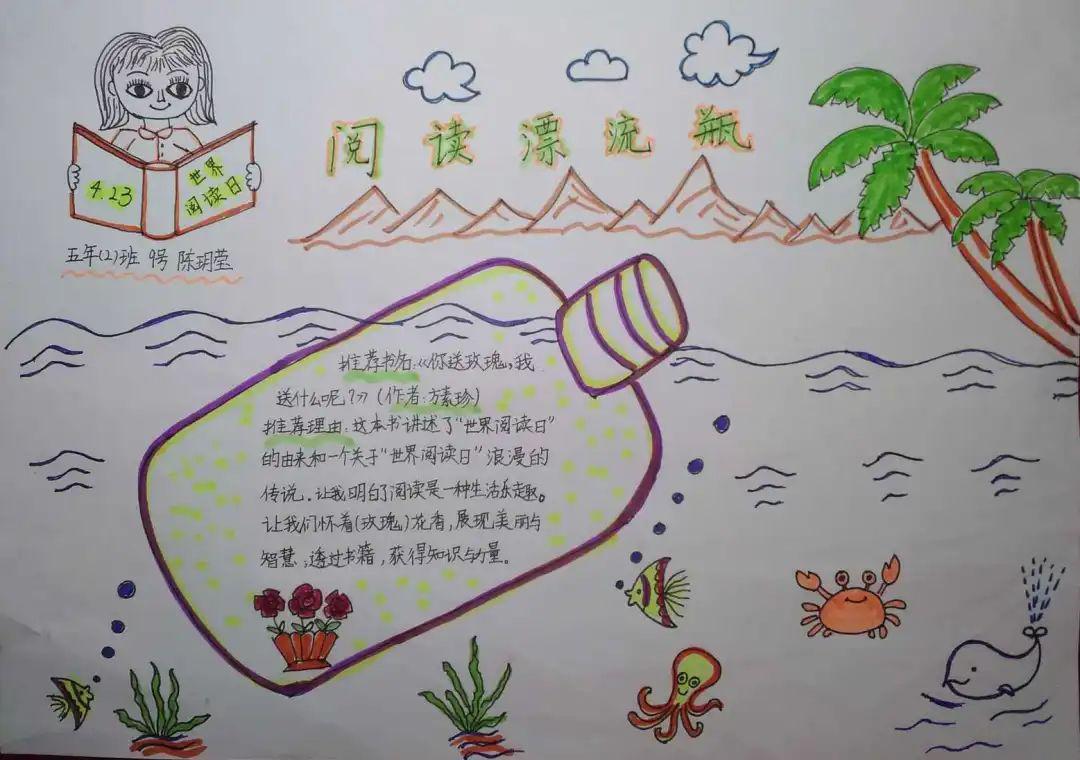 阅读漂流瓶
4.23
世界
阅读日
五年(2)班 9号 陈玥莹
推荐书名:《你送玫瑰,我
送什么呢?》(作者:方素珍)
推荐理由:这本书讲述了“世界阅读日”
的由来和一个关于“世界阅读日”浪漫的
传说。让我明白了阅读是一种生活乐趣。
让我们怀着(玫瑰)花香,展现美丽与
智慧,透过书籍,获得知识与力量。